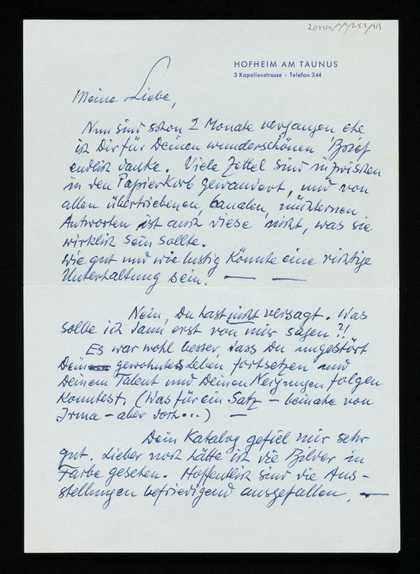 HOFHEIM AM TAUNUS
3 Kapellenstrasse - Telefon 344
Meine Liebe,
Nun sind schon 2 Monate vergangen ehe
ich Dir für Deinen wunderschönen Brief
endlich danke. Viele Zettel sind inzwischen
in den Papierkorb gewandert, und von
allen übertriebenen, banalen, nüchternen
Antworten ist auch diese nicht, was sie
wirklich sein sollte.
Wie gut und wie lustig könnte eine richtige
Unterhaltung sein. — —
Nein, Du hast nicht versagt. Was
sollte ich dann erst von mir sagen?!
Es war wohl besser, dass Du ungestört
Dein gewohntes Leben fortsetzen und
Deinem Talent und Deinen Neigungen folgen
konntest. (Was für ein Satz – beinahe von
Irma – aber doch...) —
Dein Katalog gefiel mir sehr
gut. Lieber noch hätte ich die Bilder in
Farbe gesehen. Hoffentlich sind die Aus-
stellungen befriedigend ausgefallen. —